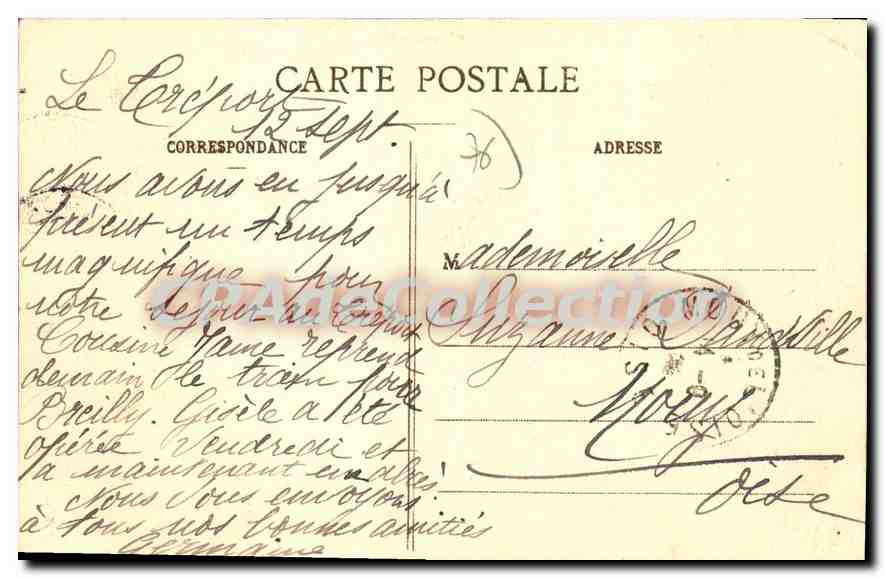 CARTE POSTALE
Le Tréport
12 sept.
CORRESPONDANCE
Nous avons eu jusqu'à
présent un temps
magnifique pour
notre séjour au Tréport
Cousine Jame reprend
demain le train pour
Breilly. Gisèle a été
opérée Vendredi et
a maintenant en abcès
Nous vous envoyons
à tous nos bonnes amitiés
Germaine
76
ADRESSE
Mademoiselle
Suzanne
Noyon
Oise
CPAdeCollection.com